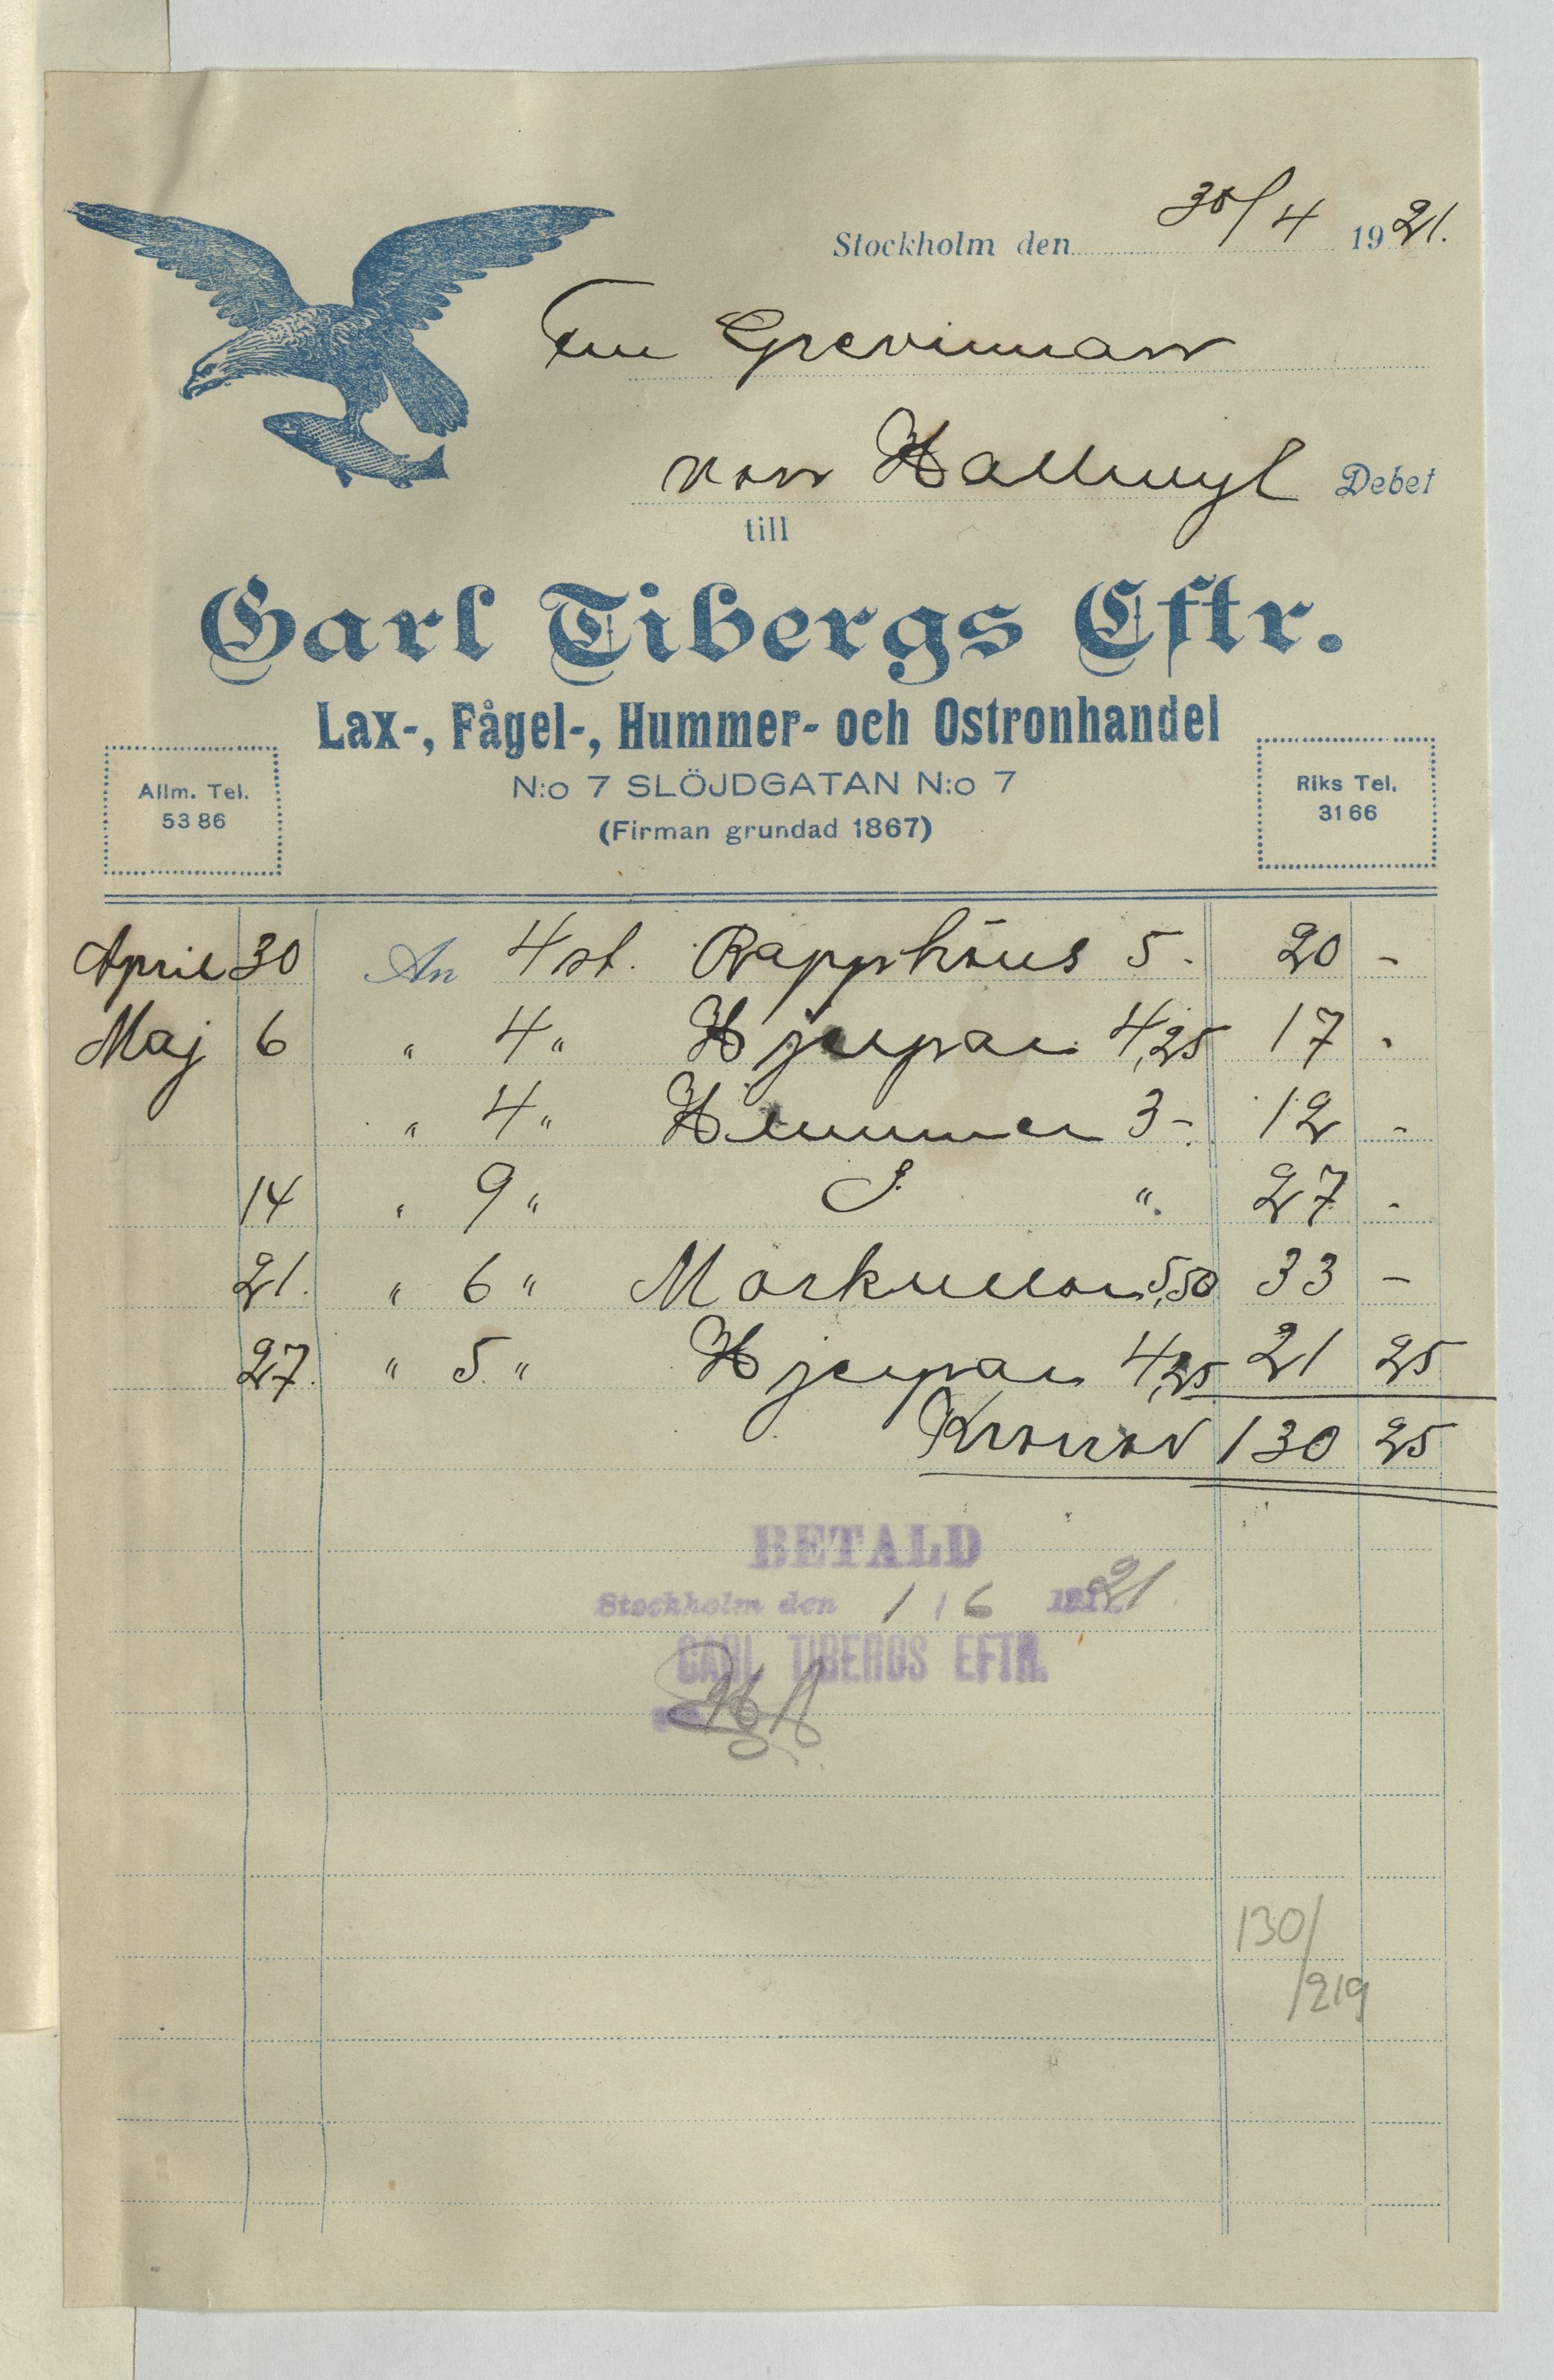 Stockholm den 30/4 1921.
Fru Grevinnan
von Hallwyl Debet
till
Carl Tibergs Eftr.
Lax-, Fågel-, Hummer- och Ostronhandel
N:o 7 SLÖJDGATAN N:o 7
(Firman grundad 1867)
Allm. Tel.
53 86
Riks Tel.
31 66
April 30 An 4 st. Rapphöns 5 - 20 -
Maj 6 " 4 " Hjerpar 4,25 17 -
" 4 " Hummer 3 - 12 -
14 " 9 " " 27 -
21. " 6 " Morkullor 5,50 33 -
27. " 5 " Hjerpar 4,25 21 25
Kronor 130 25
BETALD
Stockholm den 1/6 21
CARL TIBERGS EFTR.
130/
/219